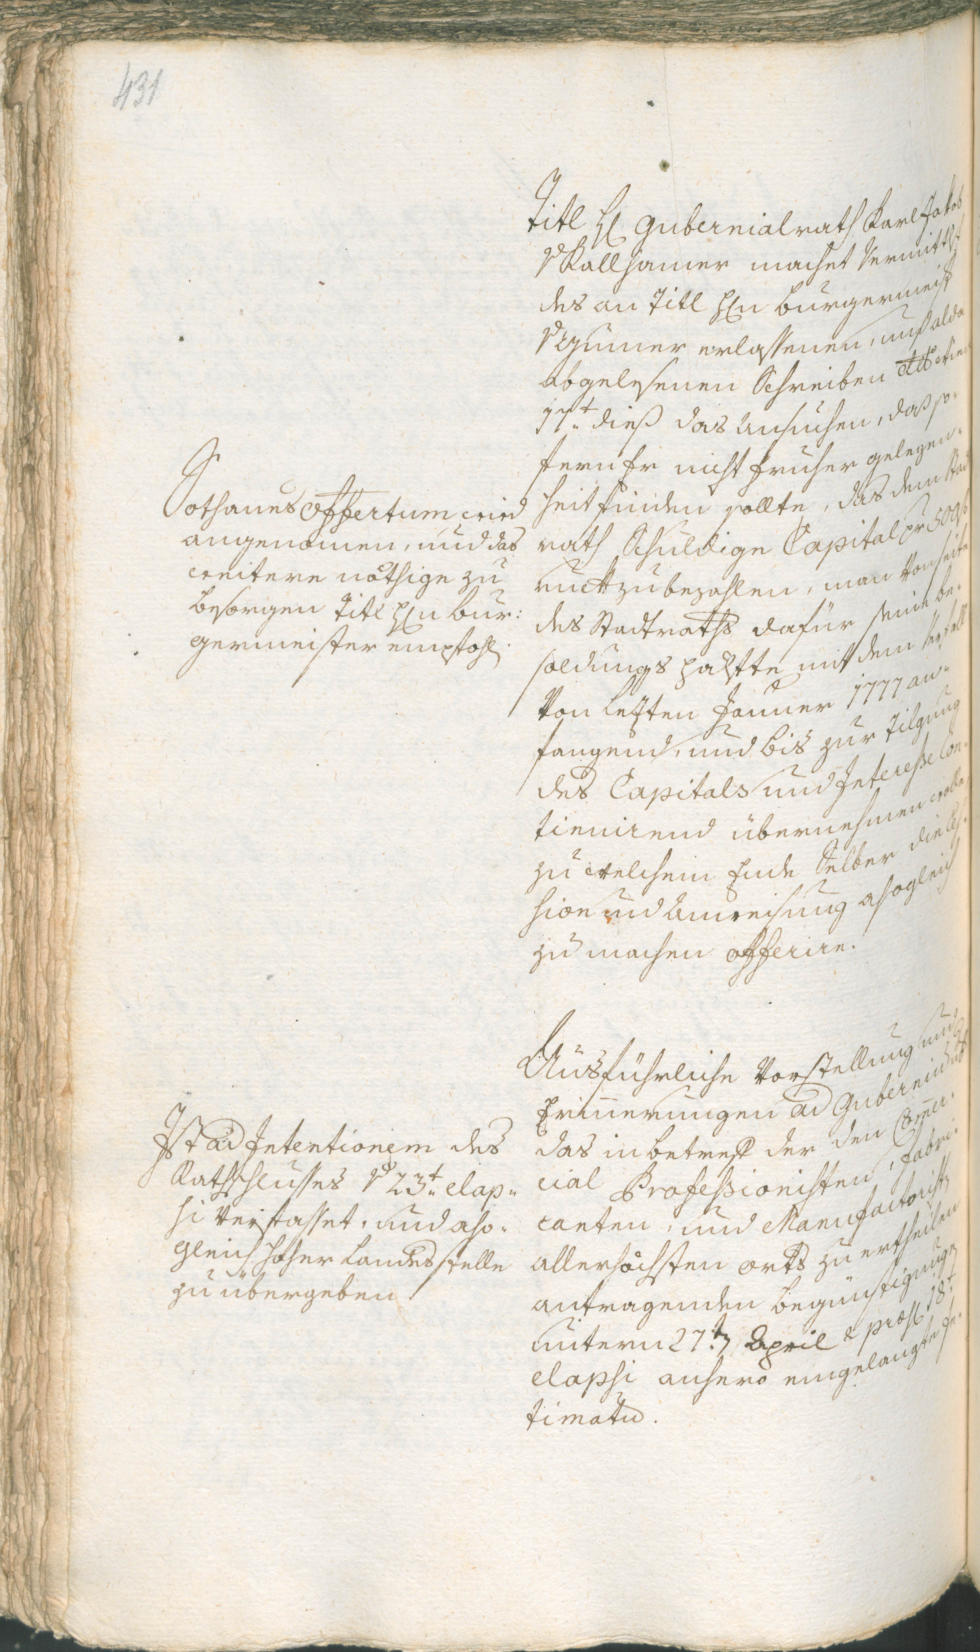 431
Titl H. Gubernialrath Karl Jakob
v Kallhamer machet vermitt
des an Titl H. Burgermeist
v Zgumer erlassenen, und alda
abgelesenen Schreiben
17t. dieß das Ansuchen, daß so
fern Er nicht früher gelegen
heit finden sollte, das dem Stadt
rath Schuldige Capital pr 500f
ruckzubezahlen, man von seite
des Stadtraths dafür seine be
soldungs
von lezten Jänner 1777 an
fangend, und bis zur Tilgung
des Capitals und Interesse Con
tinuirend übernehmen wolle
zu welchem Ende Selber die Ces
sion und Anweisung alsogleich
zu machen offerire.
Sothanes Offertum wird
angenomen, und das
weitere nöthige zu
besorgen Titl H. Bur:
germeister empfohl.
Ausführliche Vorstellung und
Erinnerungen ad Gubernium
das in betreff der den Comer
cial Professionisten, Fabri
canten, und Manufactorist
allerhöchsten orts zu ertheilen
antragenden begünstigungen
untern 27t. April & præs. 18t
elapsi anhero eingelangte In
timatu.
Ist ad Intentionem des
Rathschlusses v 23t. elap„
si verfasset, und also„
gleich hoher Landesstelle
zu übergeben.